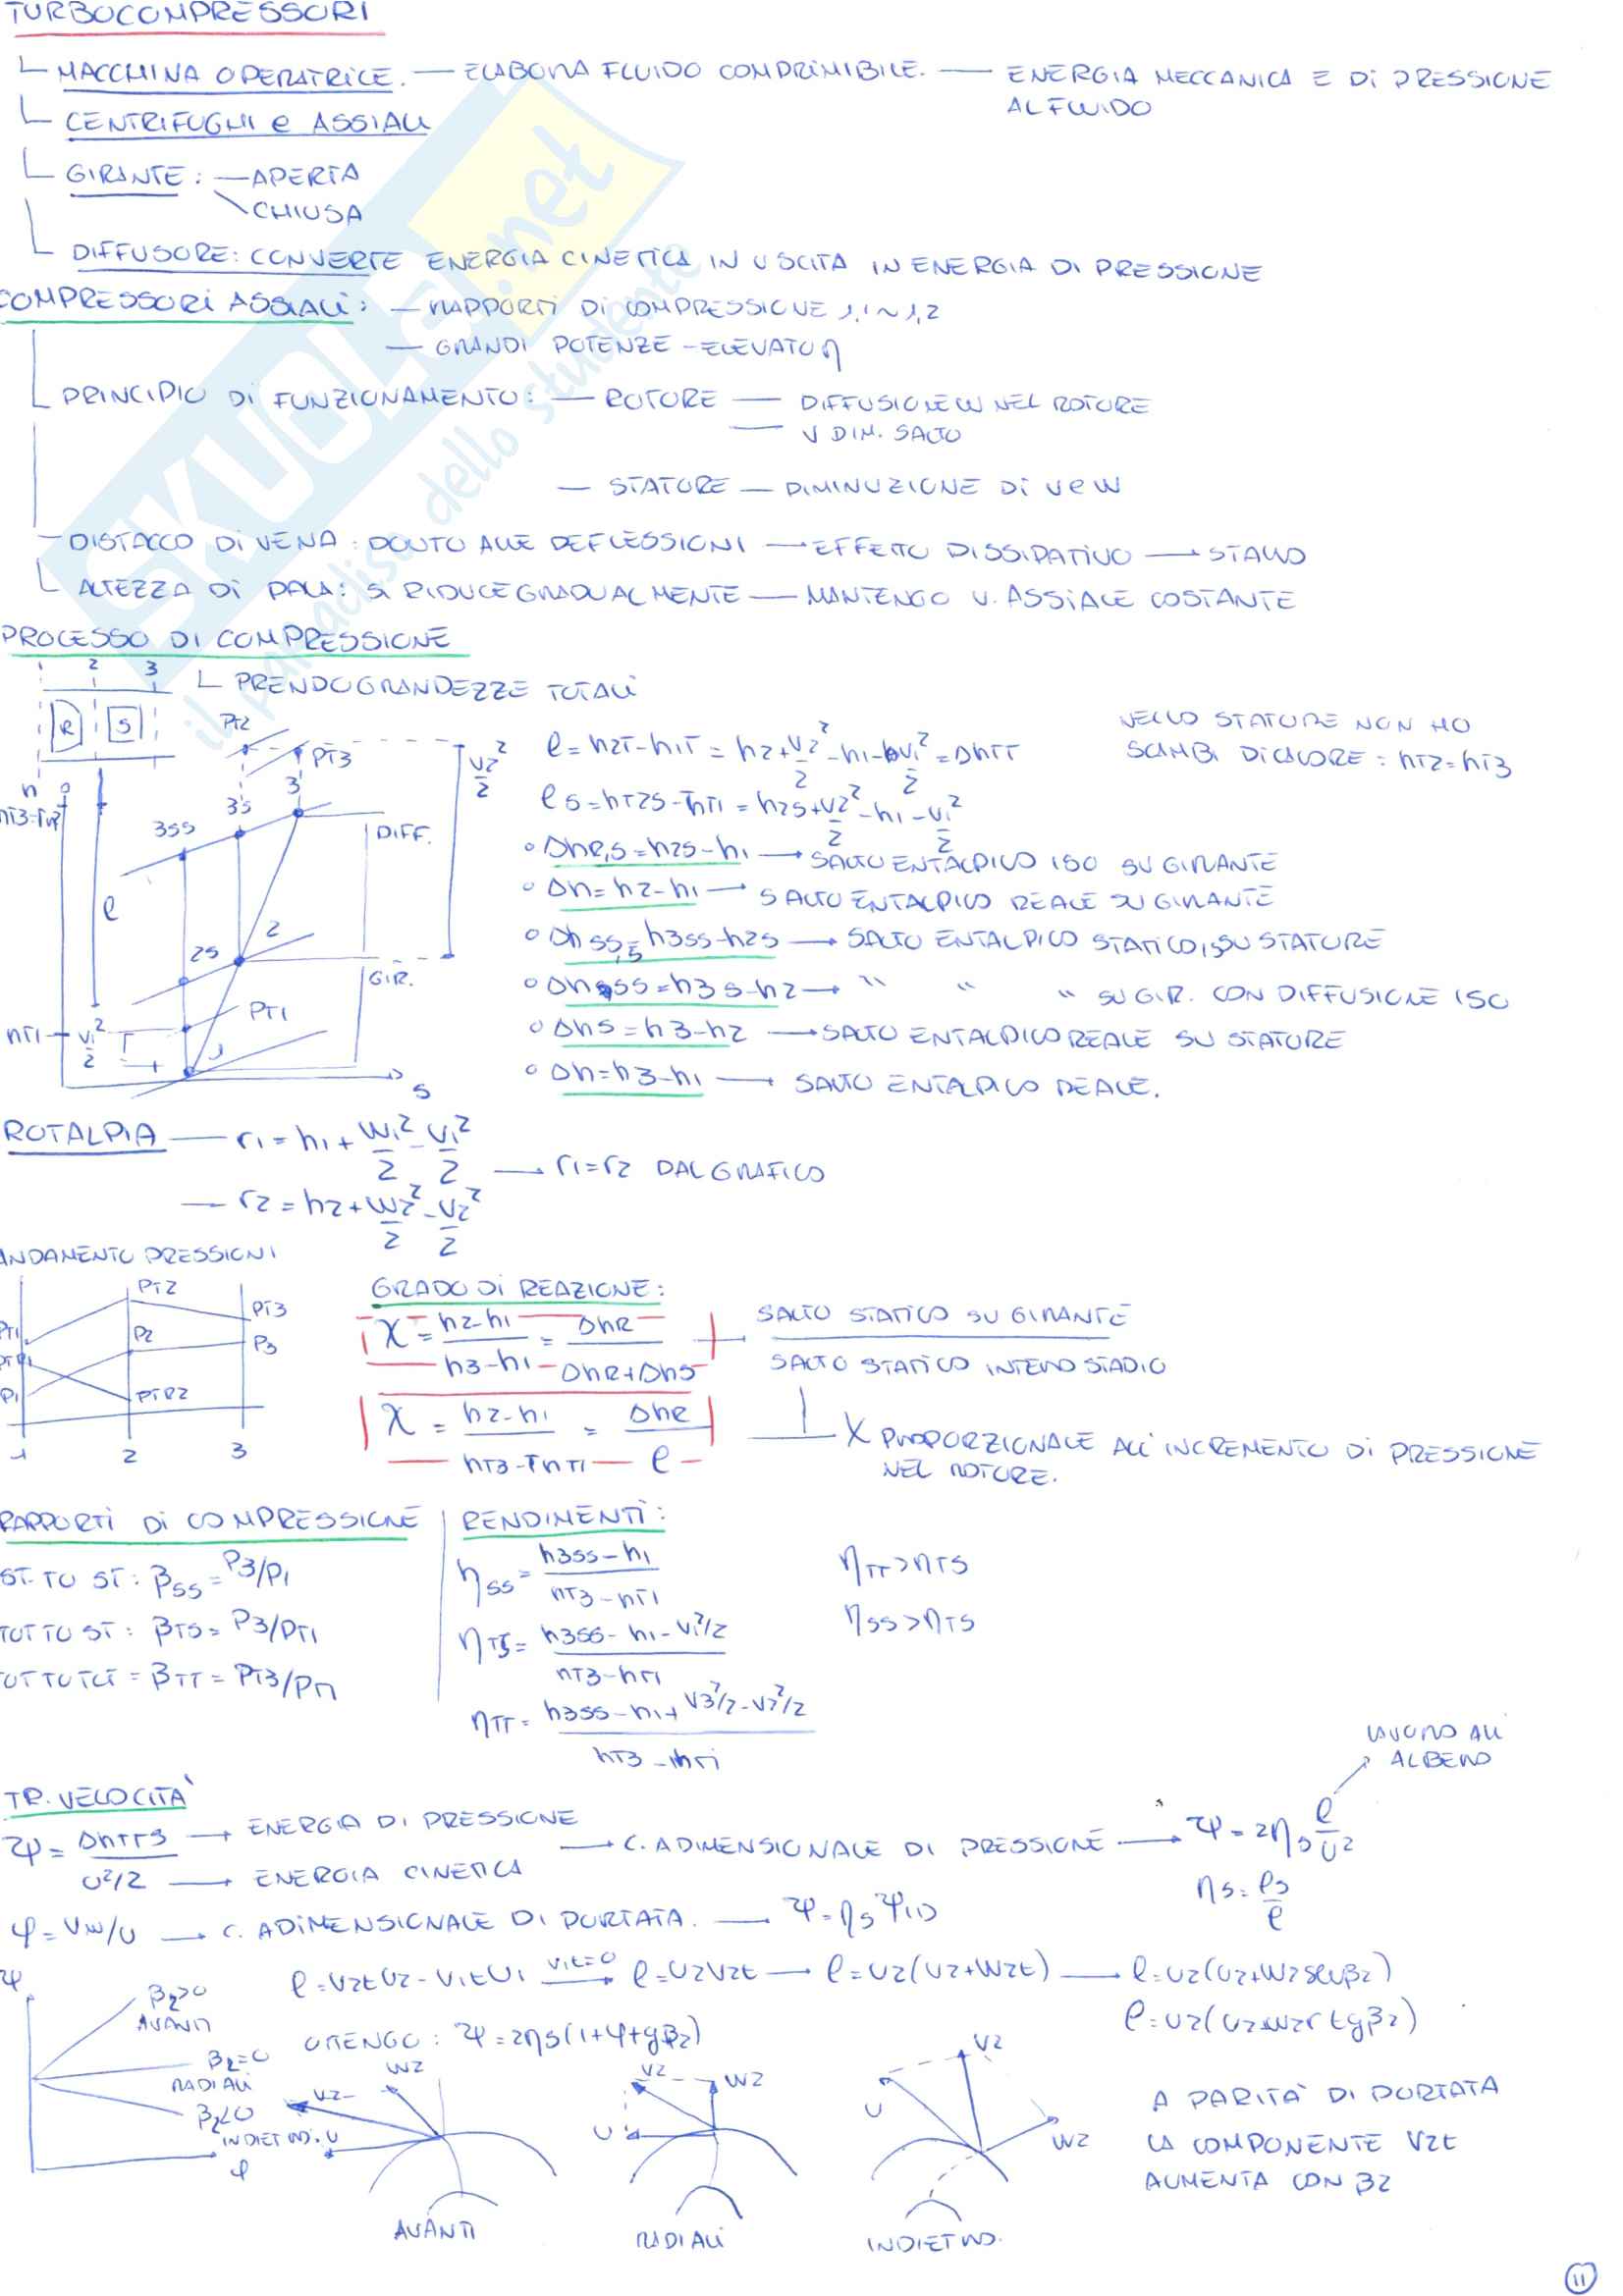 TURBOCOMPRESSORI
MACCHINA OPERATRICE. — ELABORA FLUIDO COMPRIMIBILE. — ENERGIA MECCANICA E DI PRESSIONE
AL FLUIDO
CENTRIFUGHI e ASSIALI
GIRANTE: — APERTA
CHIUSA
DIFFUSORE: CONVERTE ENERGIA CINETICA IN USCITA IN ENERGIA DI PRESSIONE
COMPRESSORI ASSIALI: — RAPPORTI DI COMPRESSIONE 1,1 ~ 1,2
— GRANDI POTENZE - ELEVATO η
PRINCIPIO DI FUNZIONAMENTO: — ROTORE — DIFFUSIONE W NEL ROTORE
— V DIM. SALTO
— STATORE — DIMINUZIONE DI V e W
— DISTACCO DI VENA: DOVUTO ALLE DEFLESSIONI → EFFETTO DISSIPATIVO → STALLO
ALTEZZA DI PALA: SI RIDUCE GRADUALMENTE — MANTENGO V. ASSIALE COSTANTE
PROCESSO DI COMPRESSIONE
1 2 3
PRENDO GRANDEZZE TOTALI
R S
PT2
PT3
V2²/2
l = h2T - h1T = h2 + V2²/2 - h1 - V1²/2 = ΔhTT
NELLO STATORE NON HO
SCAMBI DI CALORE: hT2 = hT3
h
hT3=hT2
3SS 3S 3
DIFF.
lS = hT2S - hT1 = h2S + V2²/2 - h1 - V1²/2
° ΔhR,S = h2S - h1 → SALTO ENTALPICO ISO SU GIRANTE
° Δh = h2 - h1 → SALTO ENTALPICO REALE SU GIRANTE
l
2S 2
° ΔhSS,S = h3SS - h2S → SALTO ENTALPICO STATICO, S SU STATORE
GIR.
° ΔhSS = h3S - h2 → " " " SU GIR. CON DIFFUSIONE ISO
PT1
hT1 V1²/2
° ΔhS = h3 - h2 → SALTO ENTALPICO REALE SU STATORE
1
° Δh = h3 - h1 → SALTO ENTALPICO REALE.
S
ROTALPIA — r1 = h1 + W1²/2 - U1²/2 → r1 = r2 DAL GRAFICO
— r2 = h2 + W2²/2 - U2²/2
ANDAMENTO PRESSIONI
PT2
PT3
PT1
P2
P3
PTR1
P1
PTR2
1 2 3
GRADO DI REAZIONE:
χ = h2-h1 / h3-h1 = ΔhR / ΔhR+ΔhS
SALTO STATICO SU GIRANTE
SALTO STATICO INTERO STADIO
χ = h2-h1 / hT3-hT1 = ΔhR / l
χ PROPORZIONALE ALL'INCREMENTO DI PRESSIONE
NEL ROTORE.
RAPPORTI DI COMPRESSIONE
ST. TO ST: βSS = P3/P1
TOT TO ST: βTS = P3/PT1
TOT TO TOT = βTT = PT3/PT1
RENDIMENTI:
ηSS = h3SS - h1 / hT3 - hT1
ηTS = h3SS - h1 - V1²/2 / hT3 - hT1
ηTT = h3SS - h1 + V3²/2 - V2²/2 / hT3 - hT1
ηTT > ηTS
ηSS > ηTS
TR. VELOCITÀ
LAVORO ALL'
ALBERO
ψ = ΔhTTS / U²/2 → ENERGIA DI PRESSIONE
→ ENERGIA CINETICA
→ C. ADIMENSIONALE DI PRESSIONE → ψ = 2ηS l/U²
ηS = lS/l
φ = Vm/U → C. ADIMENSIONALE DI PORTATA. — ψ = ηS ψID
l = V2tU2 - V1tU1 V1t=0 → l = U2V2t → l = U2(U2+W2t) → l = U2(U2+W2senβ2)
l = U2(U2+W2r tgβ2)
OTTENGO: ψ = 2ηS(1+φtgβ2)
ψ
β2>0
AVANTI
β2=0
RADIALI
β2<0
INDIETRO.
φ
V2 W2 U
AVANTI
V2 W2 U
RADIALI
V2 U W2
INDIETRO.
A PARITÀ DI PORTATA
LA COMPONENTE V2t
AUMENTA CON β2
11
SKUOLA.net
il paradiso dello studente